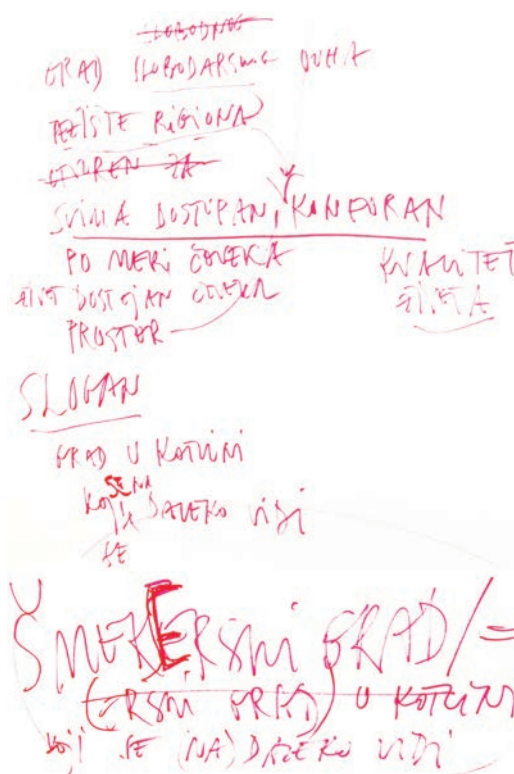 SLOBODNOG
GRAD SLOBODARSKOG DUHA
TEŽIŠTE REGIONA
OTVOREN ZA
SVIMA DOSTUPAN, KOMFORAN
PO MERI ČOVEKA
KVALITET
ŽIVOT DOSTOJAN ČOVEKA
ŽIVOTA
PROSTOR
SLOGAN
GRAD U KOTLINI
SE NA
KOJI DALEKO VIDI
SE
ŠMEKERSKI GRAD/=
(ERSKI GRAD) U KOTLINI
KOJI SE (NA) DALEKO VIDI